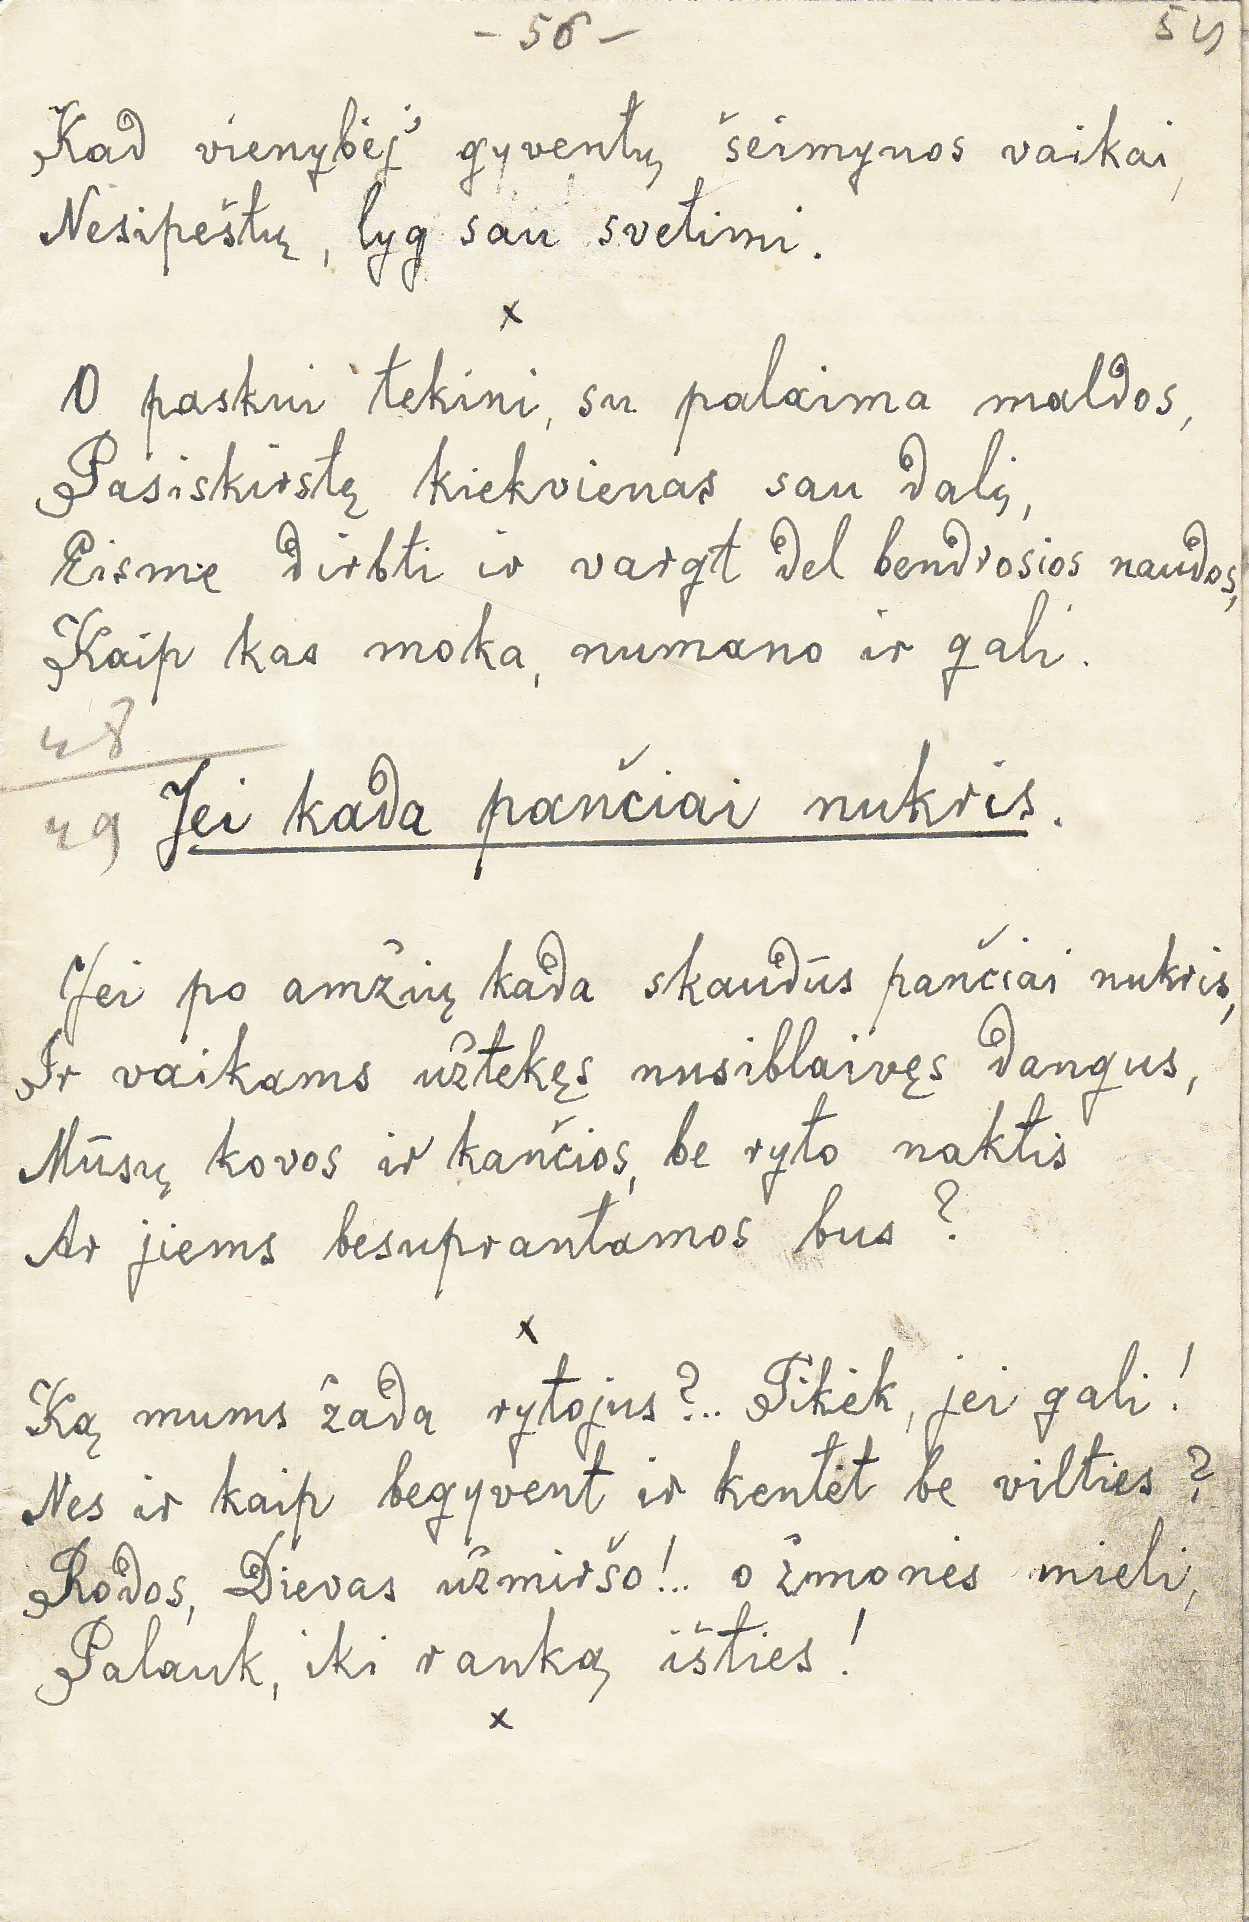 - 56 -
54
Kad vienybėj' gyventų šeimynos vaikai,
Nesipeštų, lyg sau svetimi.
x
O paskui tekini, su palaima maldos,
Pasiskirstę kiekvienas sau dalį,
Eisme dirbti ir vargt del bendrosios naudos,
Kaip kas moka, numano ir gali.
48
49 Jei kada pančiai nukris.
Jei po amžių kada skaudūs pančiai nukris,
Ir vaikams užtekęs nusiblaivęs dangus,
Mūsų kovos ir kančios, be ryto naktis
Ar jiems besuprantamos bus?
x
Ką mums žada rytojus?.. Tikėk, jei gali!
Nes ir kaip begyvent ir kentėt be vilties?
Rodos, Dievas užmiršo!.. o žmonės mieli,
Palauk, iki ranką išties!
x